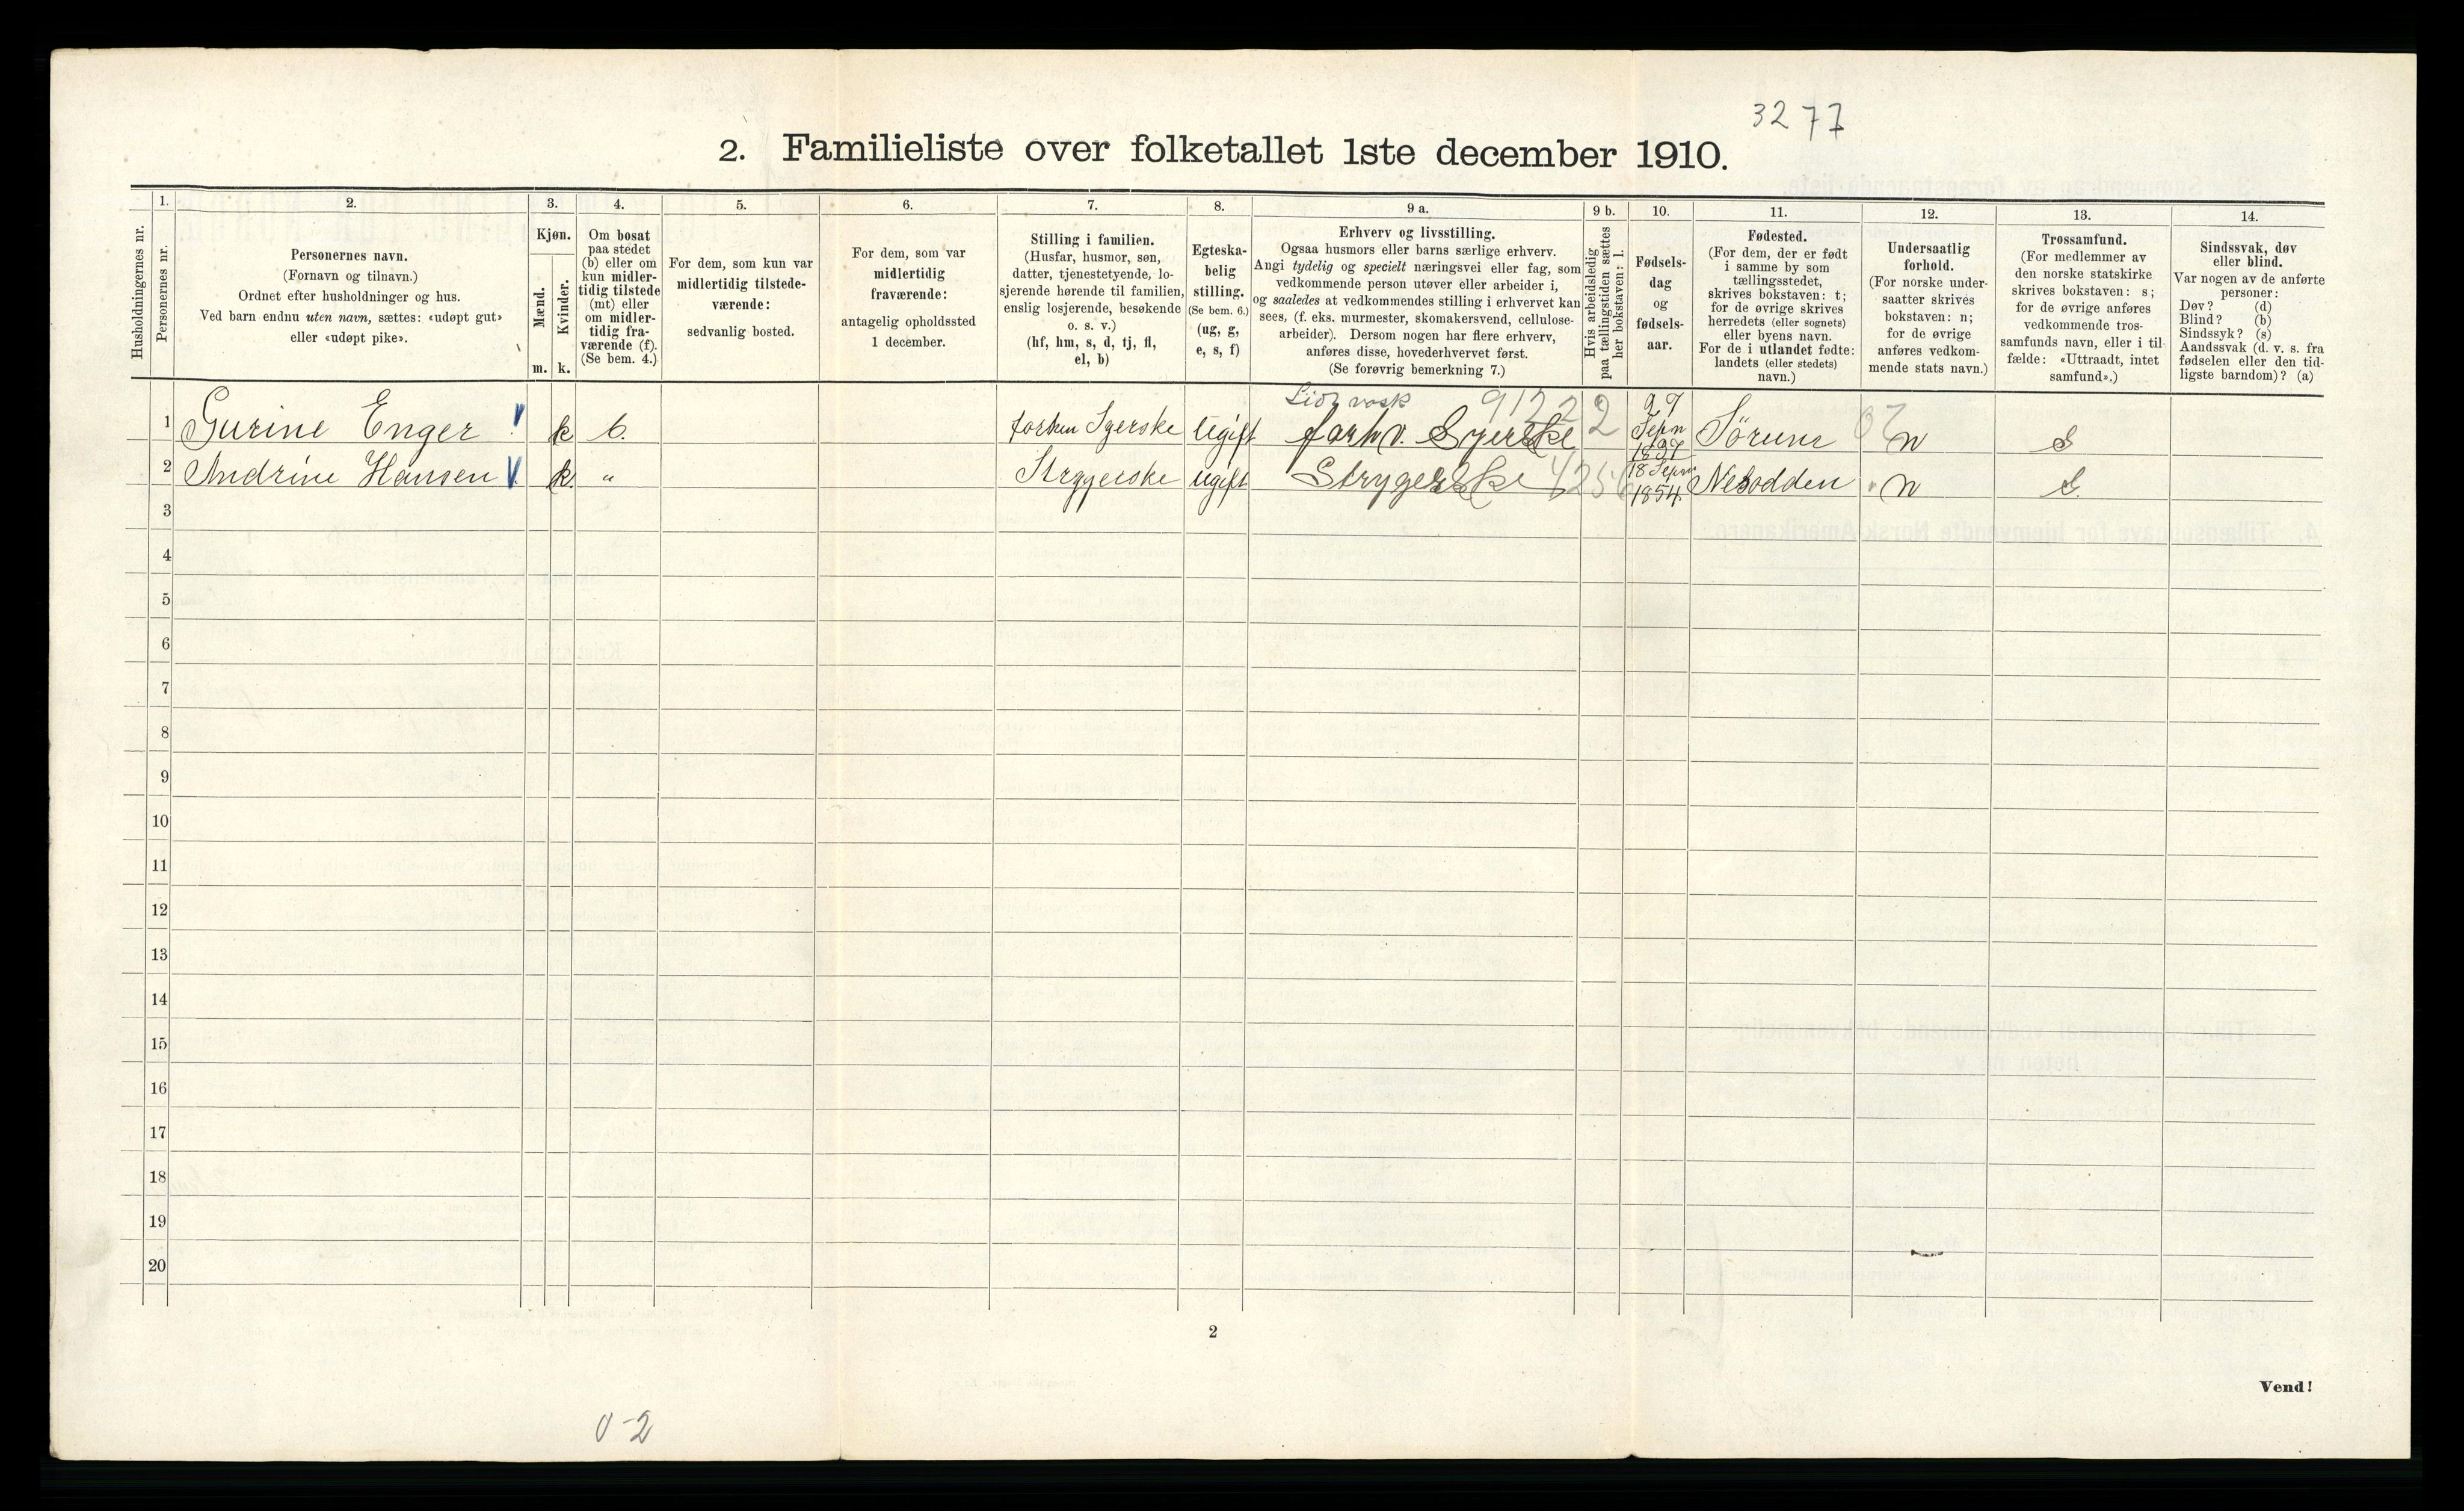 3277
2. Familieliste over folketallet 1ste december 1910.
Husholdningernes nr.
1.
Personernes nr.
2.
Personernes navn.
(Fornavn og tilnavn.)
Ordnet efter husholdninger og hus.
Ved barn endnu uten navn, sættes: «udøpt gut»
eller «udøpt pike».
3.
Kjøn.
Mænd.
Kvinder.
m.
k.
4.
Om bosat
paa stedet
(b) eller om
kun midler-
tidig tilstede
(mt) eller
om midler-
tidig fra-
værende (f).
(Se bem. 4.)
5.
For dem, som kun var
midlertidig tilstede-
værende:
sedvanlig bosted.
6.
For dem, som var
midlertidig
fraværende:
antagelig opholdssted
1 december.
7.
Stilling i familien.
(Husfar, husmor, søn,
datter, tjenestetyende, lo-
sjerende hørende til familien,
enslig losjerende, besøkende
o. s. v.)
(hf, hm, s, d, tj, fl,
el, b)
8.
Egteska-
belig
stilling.
(Se bem. 6.)
(ug, g,
e, s, f)
9 a.
Erhverv og livsstilling.
Ogsaa husmors eller barns særlige erhverv.
Angi tydelig og specielt næringsvei eller fag, som
vedkommende person utøver eller arbeider i,
og saaledes at vedkommendes stilling i erhvervet kan
sees, (f. eks. murmester, skomakersvend, cellulose-
arbeider). Dersom nogen har flere erhverv,
anføres disse, hovederhvervet først.
(Se forøvrig bemerkning 7.)
9 b.
Hvis arbeidsledig
paa tællingstiden sættes
her bokstaven: l.
10.
Fødsels-
dag
og
fødsels-
aar.
11.
Fødested.
(For dem, der er født
i samme by som
tællingsstedet,
skrives bokstaven: t;
for de øvrige skrives
herredets (eller sognets)
eller byens navn.
For de i utlandet fødte:
landets (eller stedets)
navn.)
12.
Undersaatlig
forhold.
(For norske under-
saatter skrives
bokstaven: n;
for de øvrige
anføres vedkom-
mende stats navn.)
13.
Trossamfund.
(For medlemmer av
den norske statskirke
skrives bokstaven: s;
for de øvrige anføres
vedkommende tros-
samfunds navn, eller i til-
fælde: «Uttraadt, intet
samfund».)
14.
Sindssvak, døv
eller blind.
Var nogen av de anførte
personer:
Døv? (d)
Blind? (b)
Sindssyk? (s)
Aandssvak (d. v. s. fra
fødselen eller den tid-
ligste barndom)? (a)
9122 2
1 Gurine Enger k b. Syerske Ugift forhv. Syerske 27 Sepn Sørum n S
2 Andrine Hansen k. " Strygerske Ugift Strygerske 18 Sepn 1854. Nesodden n S.
3
4
5
6
7
8
9
10
11
12
13
14
15
16
17
18
19
20
2
Vend!
0-2